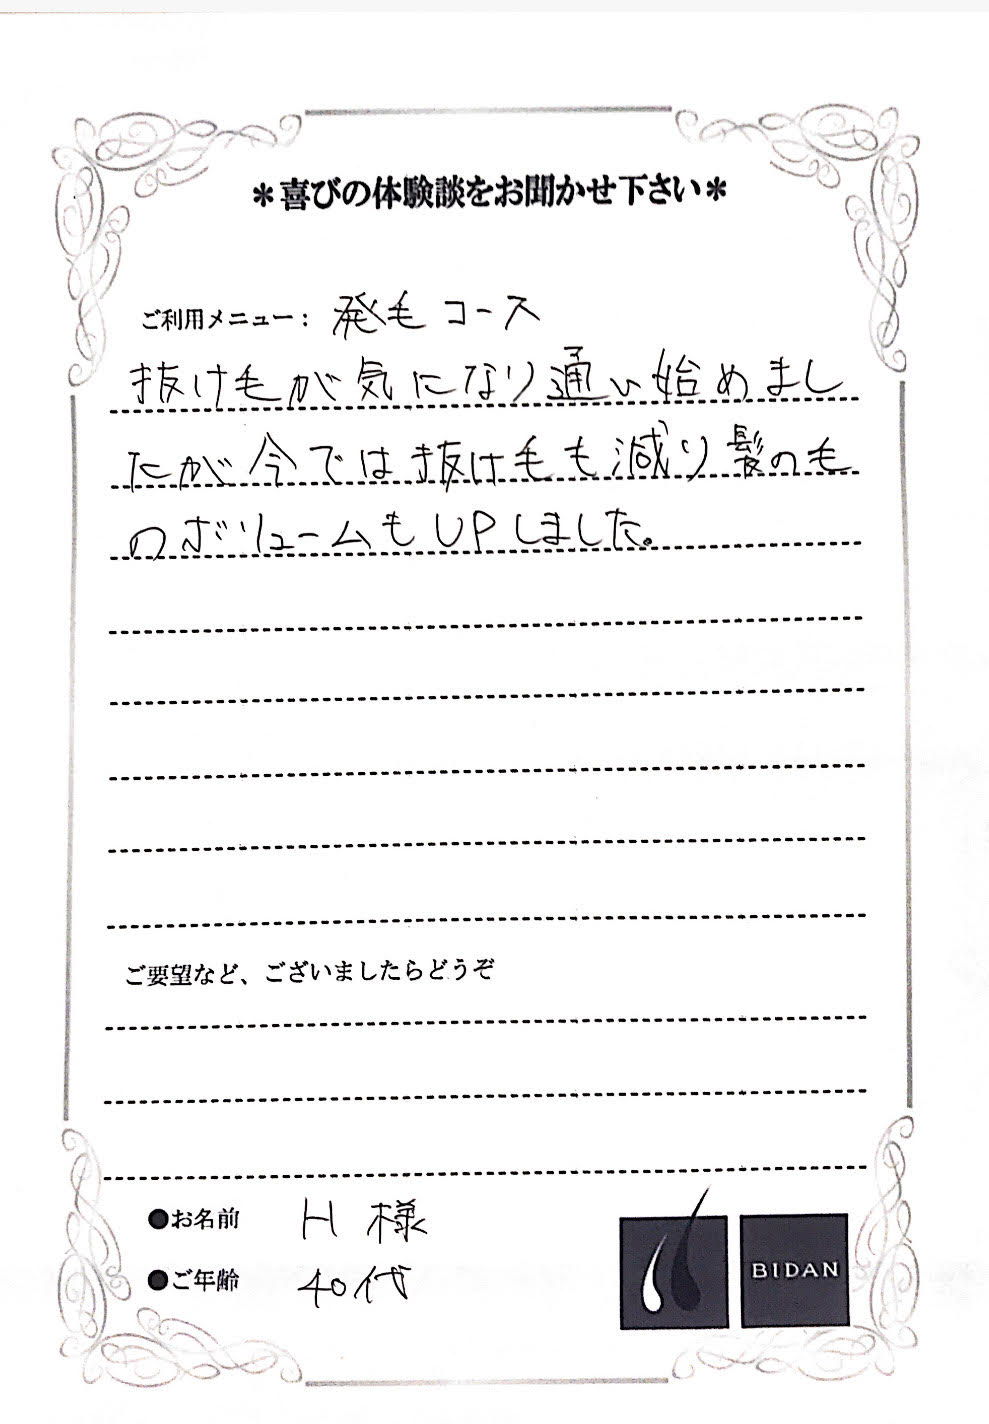 ＊喜びの体験談をお聞かせ下さい＊
ご利用メニュー： 発毛コース
抜け毛が気になり通い始めまし
たが今では抜け毛も減り髪の毛
のボリュームもUPしました。
ご要望など、ございましたらどうぞ
●お名前 H 様
●ご年齢 40代
BIDAN